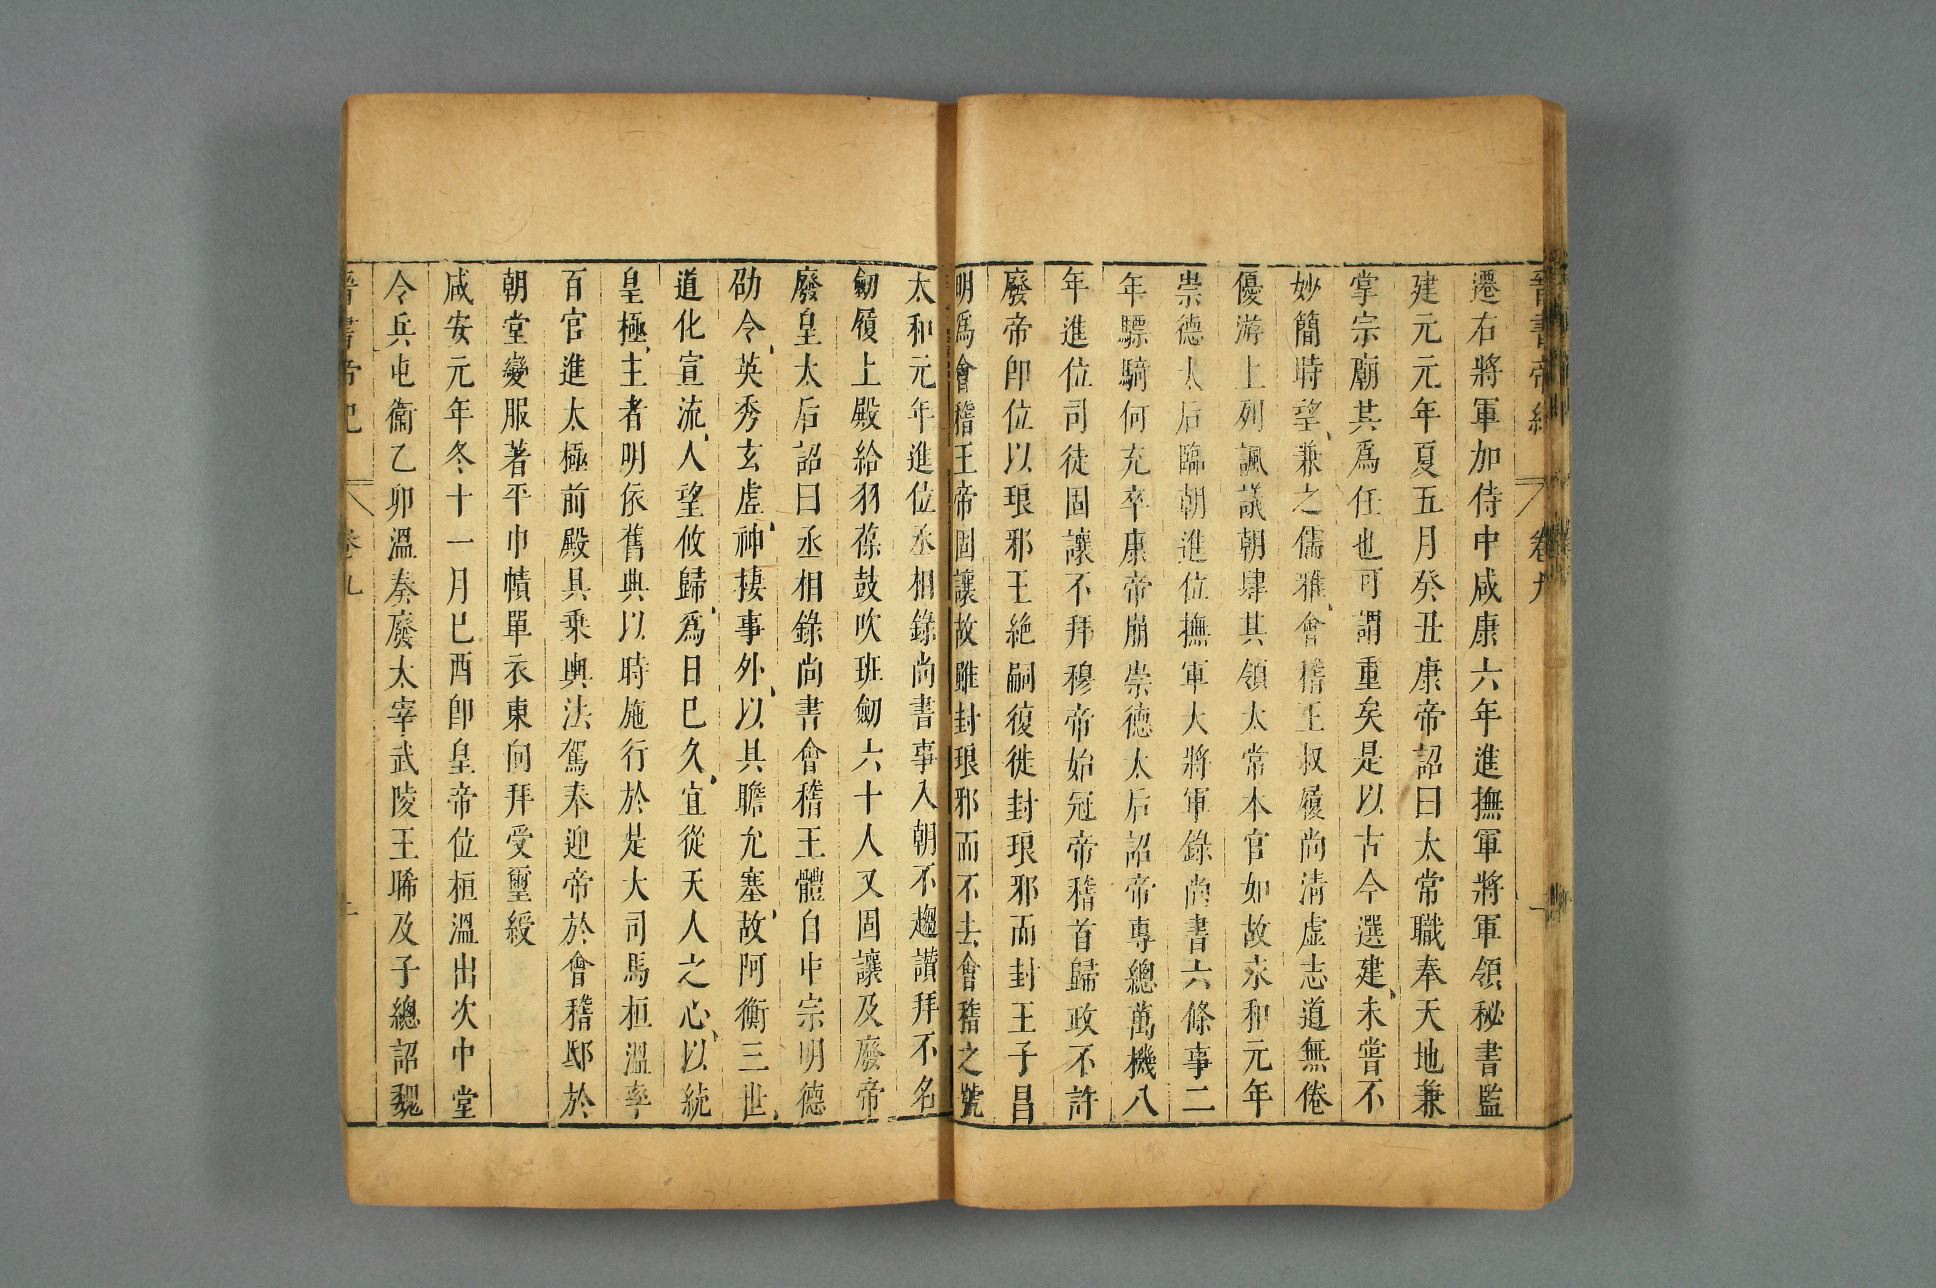 晉書帝紀 卷九 一
遷右將軍加侍中咸康六年進撫軍將軍領秘書監
建元元年夏五月癸丑康帝詔曰太常職奉天地兼
掌宗廟其爲任也可謂重矣是以古今選建未嘗不
妙簡時望兼之儒雅會稽王叔履尚清虛志道無倦
優游上列諷議朝肆其領太常本官如故永和元年
崇德太后臨朝進位撫軍大將軍錄尚書六條事二
年驃騎何充卒康帝崩崇德太后詔帝專總萬機八
年進位司徒固讓不拜穆帝始冠帝稽首歸政不許
廢帝卽位以琅邪王絶嗣復徙封琅邪而封王子昌
明爲會稽王帝固讓故雖封琅邪而不去會稽之號
太和元年進位丞相錄尚書事入朝不趨讃拜不名
劒履上殿給羽葆鼓吹班劒六十人又固讓及廢帝
廢皇太后詔曰丞相錄尚書會稽王體自中宗明德
劭令英秀玄虛神棲事外以具瞻允塞故阿衡三世
道化宣流人望攸歸爲日已久宜從天人之心以統
皇極主者明依舊典以時施行於是大司馬桓溫率
百官進太極前殿具乗輿法駕奉迎帝於會稽邸於
朝堂變服著平巾幘單衣東向拜受璽綬
咸安元年冬十一月己酉卽皇帝位桓溫出次中堂
令兵屯衞乙卯溫奏廢太宰武陵王晞及子總詔魏
晉書帝紀 卷九